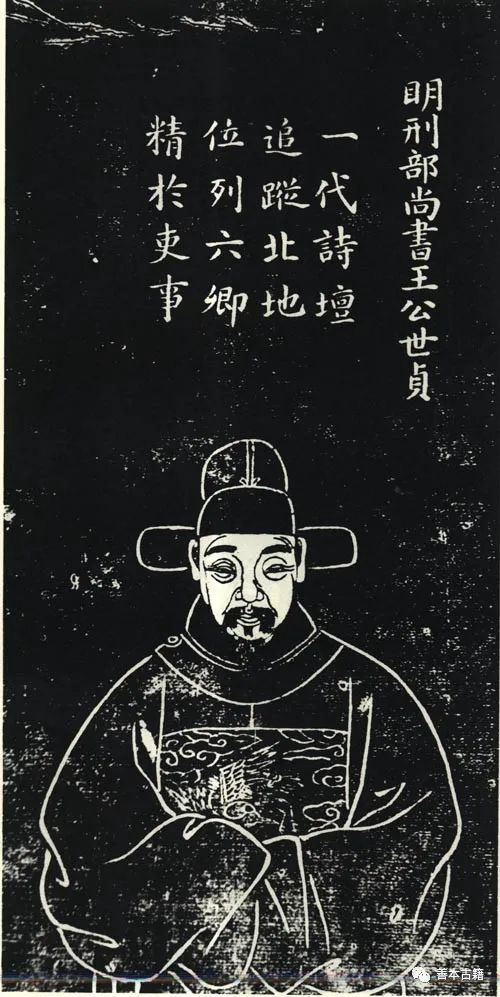 明刑部尚書王公世貞
一代詩壇
追蹤北地
位列六卿
精於吏事
善本古籍